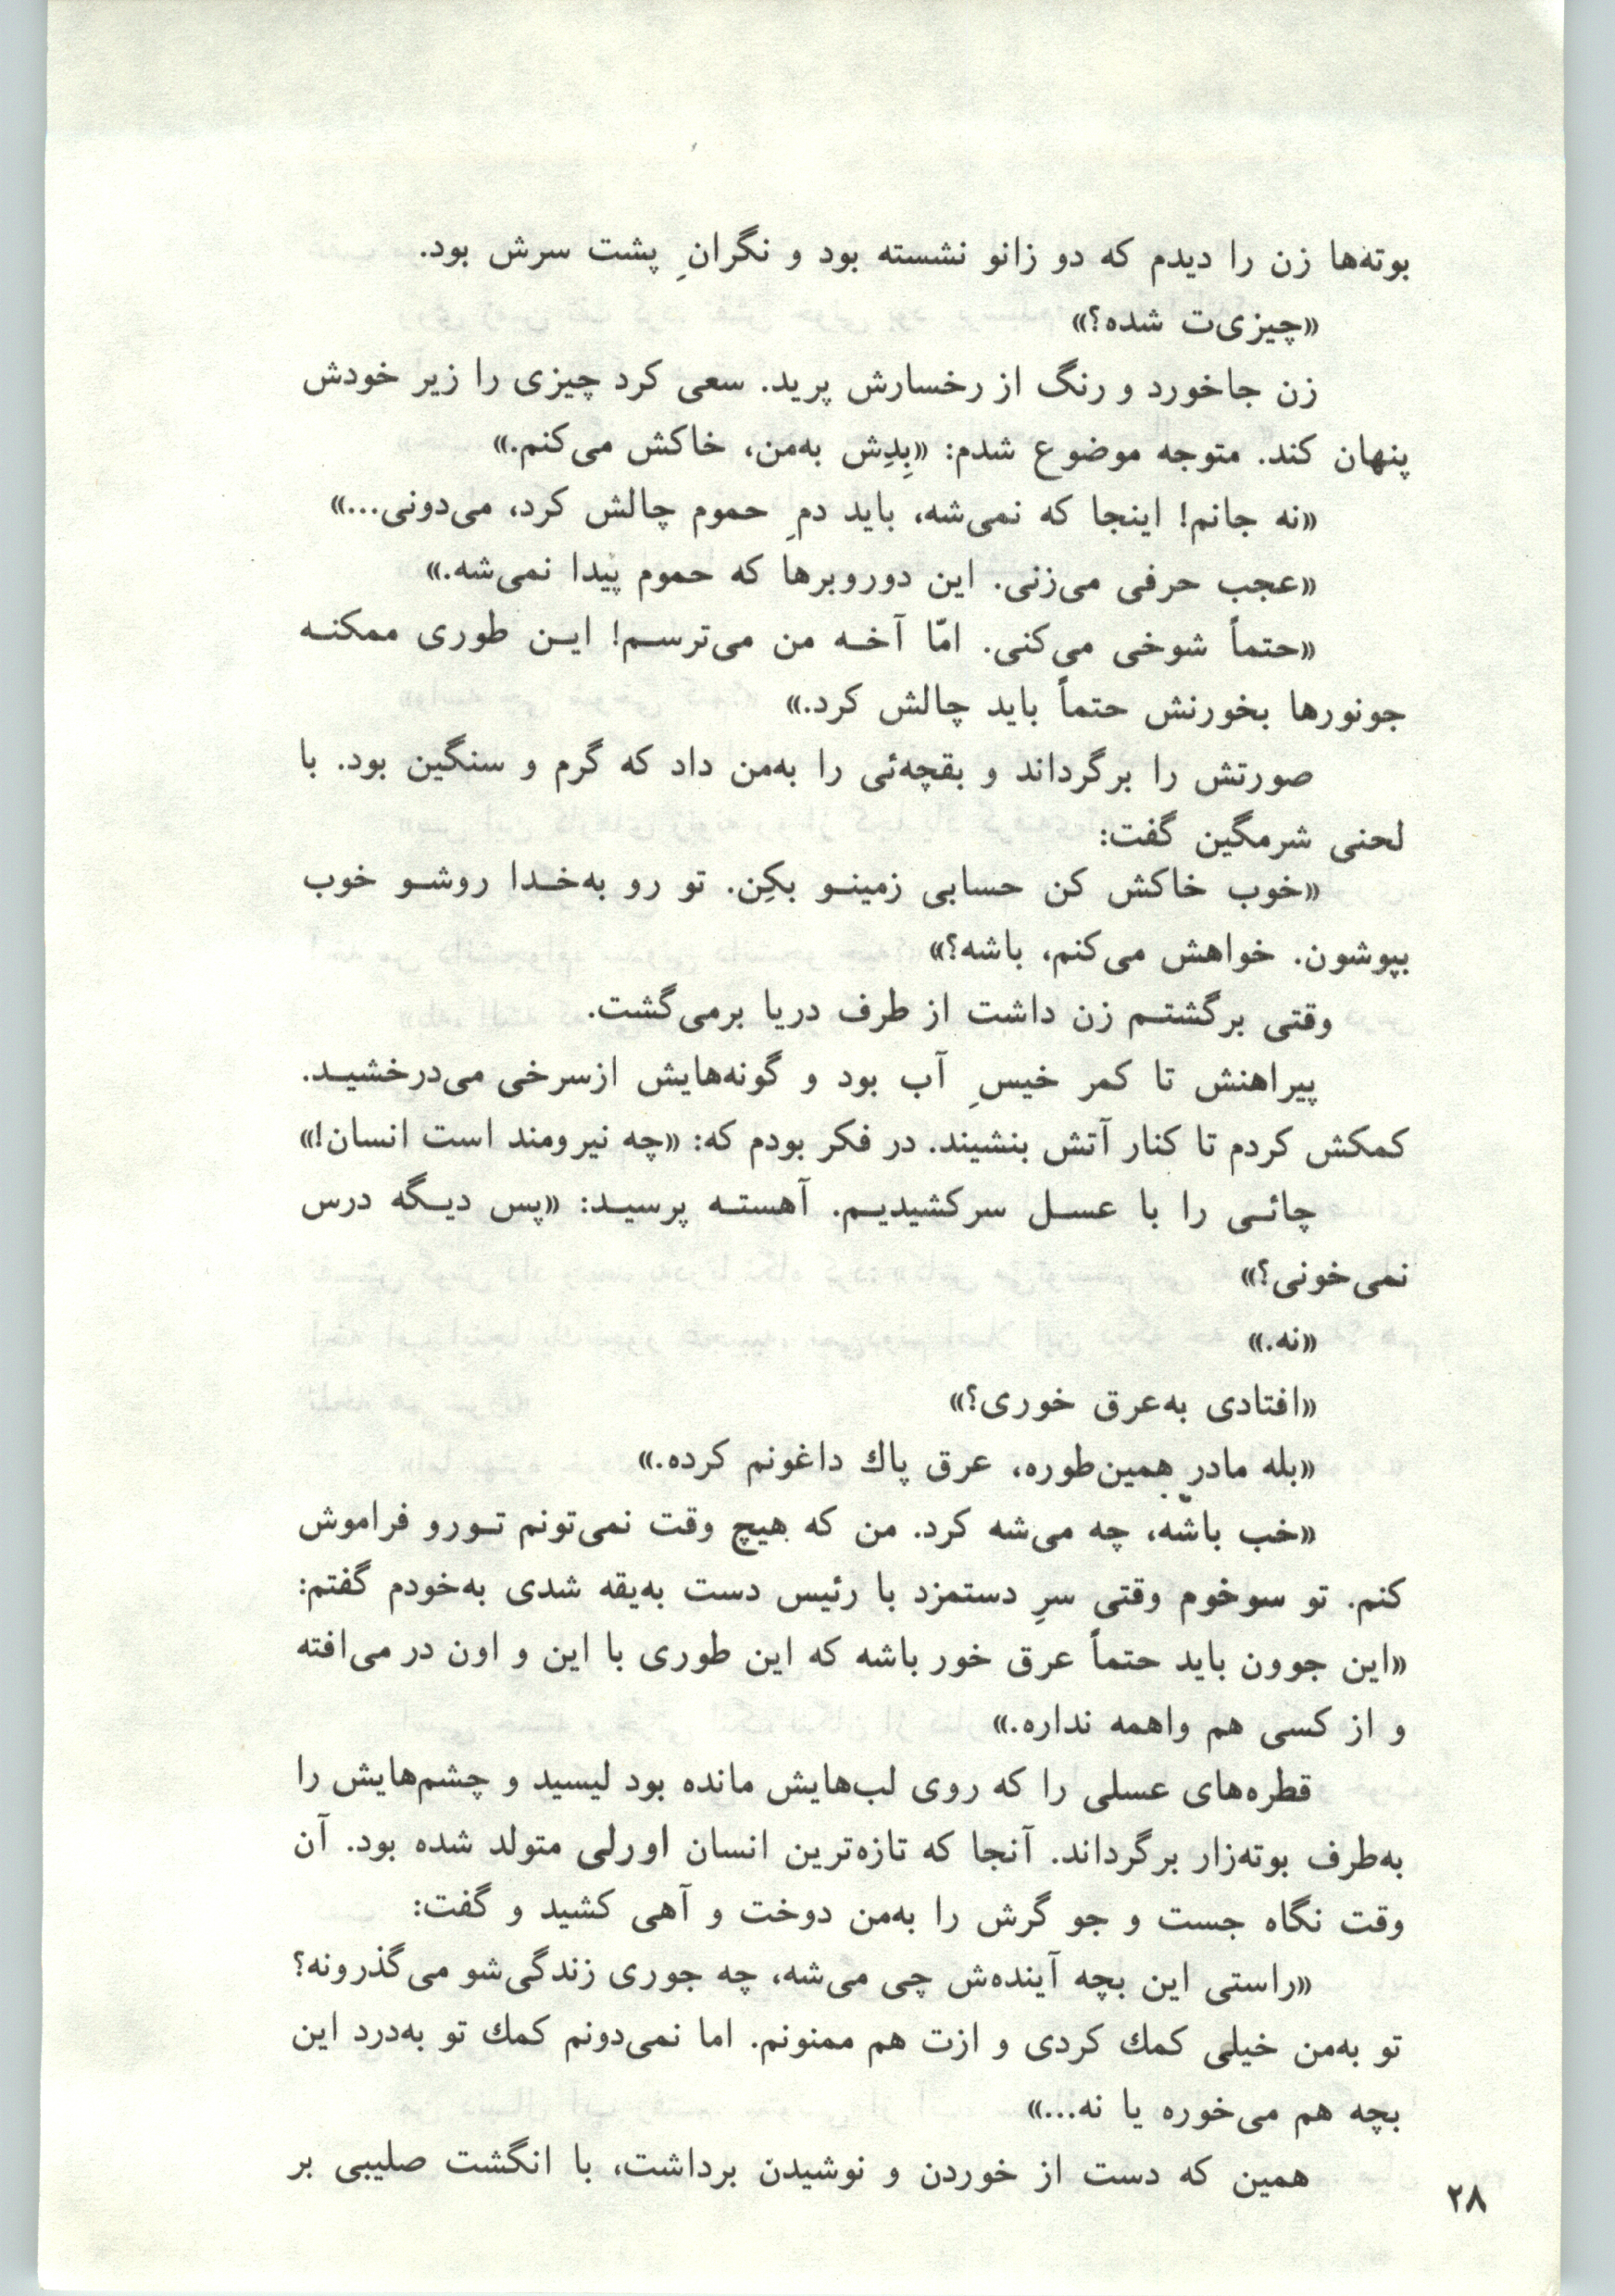 بوته‌ها زن را دیدم که دو زانو نشسته بود و نگرانِ پشت سرش بود.
«چیزی‌ت شده؟»
زن جاخورد و رنگ از رخسارش پرید. سعی کرد چیزی را زیر خودش
پنهان کند. متوجه موضوع شدم: «بِدِش به‌من، خاکش می‌کنم.»
«نه جانم! اینجا که نمی‌شه، باید دمِ حموم چالش کرد، می‌دونی...»
«عجب حرفی می‌زنی. این دوروبرها که حموم پیدا نمی‌شه.»
«حتماً شوخی می‌کنی. امّا آخـه من می‌ترسـم! ایـن طوری ممکنـه
جونورها بخورنش حتماً باید چالش کرد.»
صورتش را برگرداند و بقچه‌ئی را به‌من داد که گرم و سنگین بود. با
لحنی شرمگین گفت:
«خوب خاکش کن حسابی زمینـو بکِن. تو رو به‌خـدا روشـو خوب
بپوشون. خواهش می‌کنم، باشه؟»
وقتی برگشتـم زن داشت از طرف دریا برمی‌گشت.
پیراهنش تا کمر خیسِ آب بود و گونه‌هایش ازسرخی می‌درخشیـد.
کمکش کردم تا کنار آتش بنشیند. در فکر بودم که: «چه نیرومند است انسان!»
چائـی را با عسـل سرکشیدیـم. آهستـه پرسیـد: «پس دیـگه درس
نمی‌خونی؟»
«نه.»
«افتادی به‌عرق خوری؟»
«بله مادر همین‌طوره، عرق پاك داغونم کرده.»
«خب باشه، چه می‌شه کرد. من که هیچ وقت نمی‌تونم تـورو فراموش
کنم. تو سوخوم وقتی سرِ دستمزد با رئیس دست به‌یقه شدی به‌خودم گفتم:
«این جوون باید حتماً عرق خور باشه که این طوری با این و اون در می‌افته
و از کسی هم واهمه نداره.»
قطره‌های عسلی را که روی لب‌هایش مانده بود لیسید و چشم‌هایش را
به‌طرف بوته‌زار برگرداند. آنجا که تازه‌ترین انسان اورلی متولد شده بود. آن
وقت نگاه جست و جو گرش را به‌من دوخت و آهی کشید و گفت:
«راستی این بچه آینده‌ش چی می‌شه، چه جوری زندگی‌شو می‌گذرونه؟
تو به‌من خیلی کمك کردی و ازت هم ممنونم. اما نمی‌دونم کمك تو به‌درد این
بچه هم می‌خوره یا نه...»
همین که دست از خوردن و نوشیدن برداشت، با انگشت صلیبی بر
۲۸